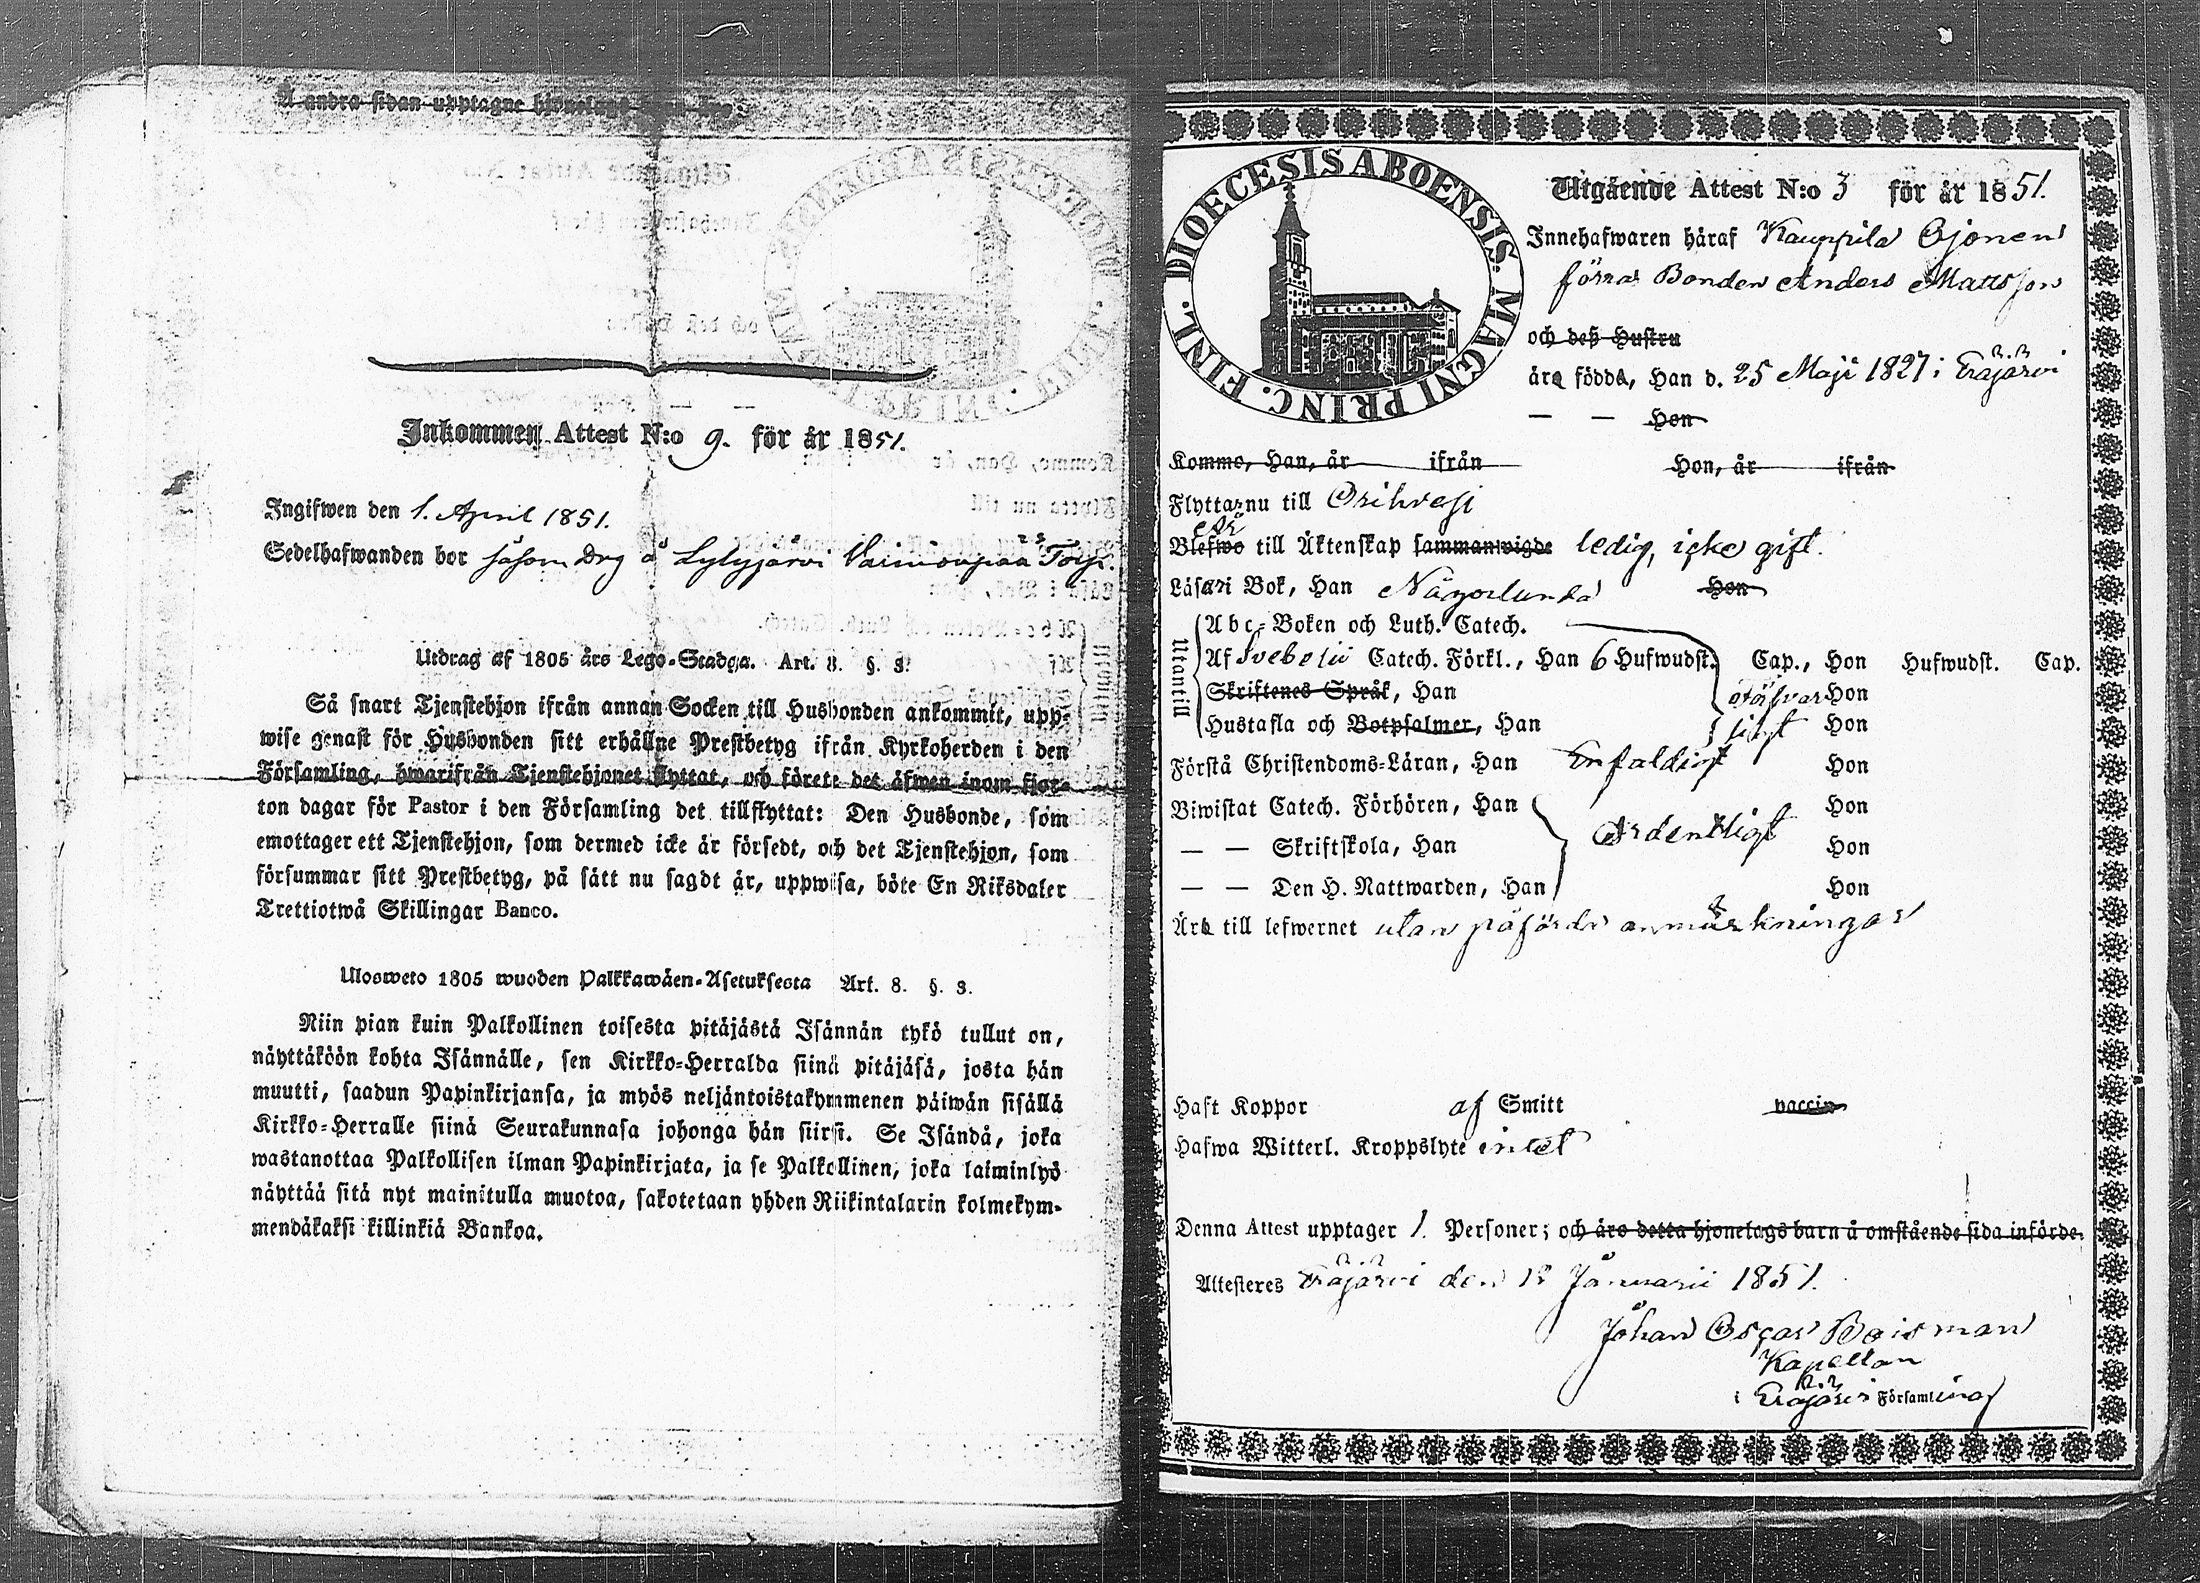 Å andra sidan upptagne hjonelags
Inkommen Attest N:o 9. för år 1851.
Ingifwen den 1. April 1851.
Sedelhafwanden bor såsom Drg å Lylyjärvi Torp.
Utdrag af 1805 års Lego-Stadga. Art. 8. §. 3.
Så snart Tjenstehjon ifrån annan Socken till Husbonden ankommit, upp-
wise genast för Husbonden sitt erhållne Prestbetyg ifrån Kyrkoherden i den
Församling, hwarifrån Tjenstehjonet flyttat, och förete det äfwen inom fjor-
ton dagar för Pastor i den Församling det tillflyttat: Den Husbonde, som
emottager ett Tjenstehjon, som dermed icke är försedt, och det Tjenstehjon, som
försummar sitt Prestbetyg, på sätt nu sagdt är, uppwisa, böte En Riksdaler
Trettiotwå Skillingar Banco.
Ulosweto 1805 wuoden Palkkawäen-Asetuksesta Art. 8. §. 3.
Niin pian kuin Palkollinen toisesta pitäjästä Isännän tykö tullut on,
näyttäköön kohta Isännälle, sen Kirkko-Herralda siinä pitäjäsä, josta hän
muutti, saadun Papinkirjansa, ja myös neljäntoistakymmenen päiwän sisällä
Kirkko-Herralle siinä Seurakunnasa johonga hän siirsi. Se Isändä, joka
wastanottaa Palkollisen ilman Papinkirjata, ja se Palkollinen, joka laiminlyö
näyttää sitä nyt mainitulla muotoa, sakotetaan yhden Riikintalarin kolmekym-
mendäkaksi killinkiä Bankoa.
DIOECESIS ABOENSIS. MAGNI PRINC. FINL.
Utgående Attest N:o 3 för år 1851.
Innehafwaren häraf Kauppila Ojonen
förra Bonden Anders Mattsson
och deß Hustru
äro födda, Han d. 25 Maji 1827 i Eräjärvi
— — Hon
Kommo, Han, år ifrån Hon, år ifrån
Flyttar nu till Orihvesi
Är
Blefwo till Äktenskap sammanwigde ledig, icke gift.
Läser i Bok, Han Någorlunda Hon
Utantill
Abc-Boken och Luth. Catech.
Af Svebelii Catech. Förkl., Han 6 Hufwudst. Cap., Hon Hufwudst. Cap.
Skriftenes Språk, Han Hon
Hustafla och Botpsalmer, Han Hon
Förstå Christendoms-Läran, Han Enfaldigt Hon
Biwistat Catech. Förhören, Han Hon
— — Skriftskola, Han Ordentligt Hon
— — Den H. Nattwarden, Han Hon
Är till lefwernet utan påförda anmärkningar
Haft Koppor af Smitt vaccin
Hafwa Witterl. Kroppslyte intet
Denna Attest upptager 1. Personer; och äro detta hjonelags barn å omstående sida införde.
Attesteres Eräjärvi den 13 Januarii 1851.
Johan Oscar Boisman
Kapellan
i Eräjärvi Församling